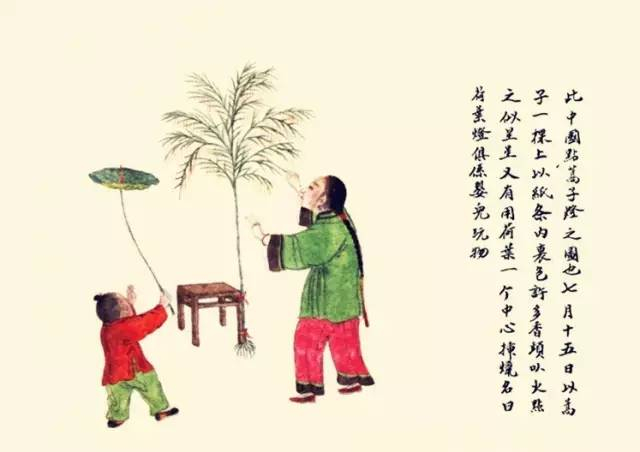 此中國點蒿子燈之圖也七月十五日以蒿
子一棵上以紙条内裹包許多香頭以火點
之似星星又有用荷葉一个中心揷蠟名曰
荷葉燈俱係嬰兒玩物